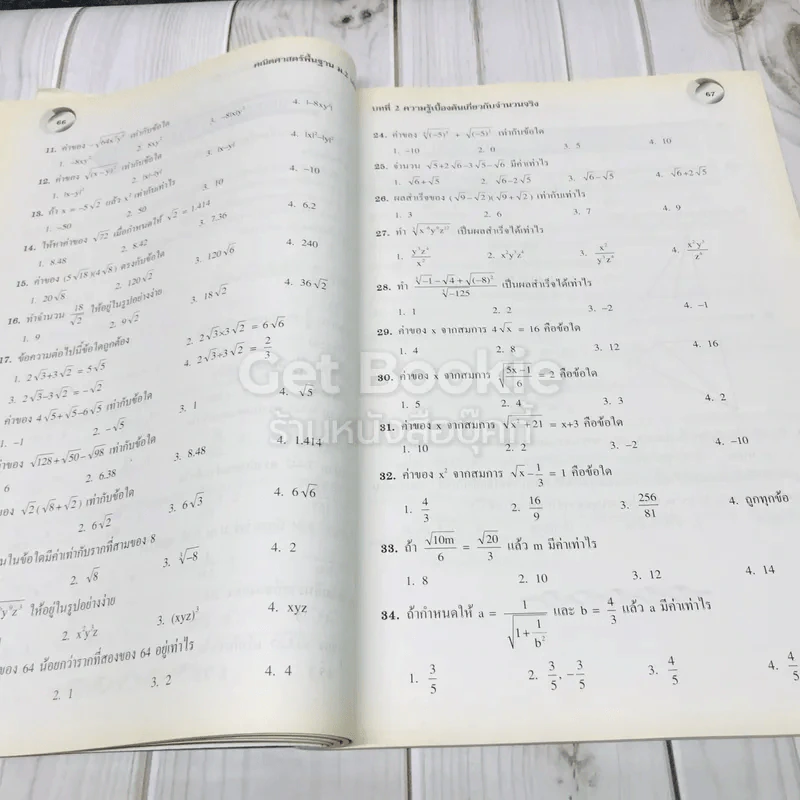 66
คณิตศาสตร์พื้นฐาน ม.2
1. -8xy³
2. 8xy³
3. -8|x|y³
4. |-8xy³|
12. ค่าของ
เท่ากับข้อใด
4. |x|³-|y|³
13. ถ้า x = -5√2 แล้ว x² เท่ากับเท่าไร
1. -50
2. 50
3. 10
4. -10
14. ให้หาค่าของ √72 เมื่อกำหนดให้ √2 = 1.414
1. 8.48
2. 8.42
3. 7.36
4. 6.2
15. ค่าของ (5√18)(4√8) ตรงกับข้อใด
1. 20√8
2. 120√2
3. 120√6
4. 240
16. ทำจำนวน 18/√2 ให้อยู่ในรูปอย่างง่าย
1. 9
2. 9√2
3. 18√2
4. 36√2
17. ข้อความต่อไปนี้ข้อใดถูกต้อง
1. 2√3+3√2 = 5√5
2. 2√3×3√2 = 6√6
3. 2√3-3√2 = -√2
4. 2√3÷3√2 = 2/3
ค่าของ 4√5+√5-6√5 เท่ากับข้อใด
1. -1
2. -√5
3. 1
4. √5
ค่าของ √128+√50-√98 เท่ากับข้อใด
6
2. 6.38
3. 8.48
4. 1.414
ของ √2(√8+√2) เท่ากับข้อใด
2. 6√2
3. 6√3
4. 6√6
นในข้อใดมีค่าเท่ากับรากที่สามของ 8
2. √8
3. ∛-8
4. 2
ให้อยู่ในรูปอย่างง่าย
2. x²y³z
3. (xyz)³
4. xyz
ของ 64 น้อยกว่ารากที่สองของ 64 อยู่เท่าไร
2. 1
3. 2
4. 4
บทที่ 2 ความรู้เบื้องต้นเกี่ยวกับจำนวนจริง
67
24. ค่าของ
เท่ากับข้อใด
1. -10
2. 0
3. 5
4. 10
25. จำนวน √5+2√6-3√5-√6 มีค่าเท่าไร
1. √6+√5
2. √6-2√5
3. √6-√5
4. √6+2√5
26. ผลสำเร็จของ (√9-√2)(√9+√2) เท่ากับเท่าไร
1. 3
2. 6
3. 7
4. 9
27. ทำ
เป็นผลสำเร็จได้เท่าไร
28. ทำ
เป็นผลสำเร็จได้เท่าไร
1. 1
2. 2
3. -2
4. -1
29. ค่าของ x จากสมการ 4√x = 16 คือข้อใด
1. 4
2. 8
3. 12
4. 16
30. ค่าของ x จากสมการ √((5x-1)/6) = 2 คือข้อใด
1. 5
2. 4
3. 3
4. 2
31. ค่าของ x จากสมการ √(x²+21) = x+3 คือข้อใด
1. 10
2. 2
3. -2
4. -10
32. ค่าของ x² จากสมการ √x - 1/3 = 1 คือข้อใด
1. 4/3
2. 16/9
3. 256/81
4. ถูกทุกข้อ
33. ถ้า √10m/6 = √20/3 แล้ว m มีค่าเท่าไร
1. 8
2. 10
3. 12
4. 14
34. ถ้ากำหนดให้ a = 1/√(1+1/b²) และ b = 4/3 แล้ว a มีค่าเท่าไร
1. 3/5
2. 3/5, -3/5
3. 4/5
4. 4/5
Get Bookie
ร้านหนังสือบุ๊คกี้